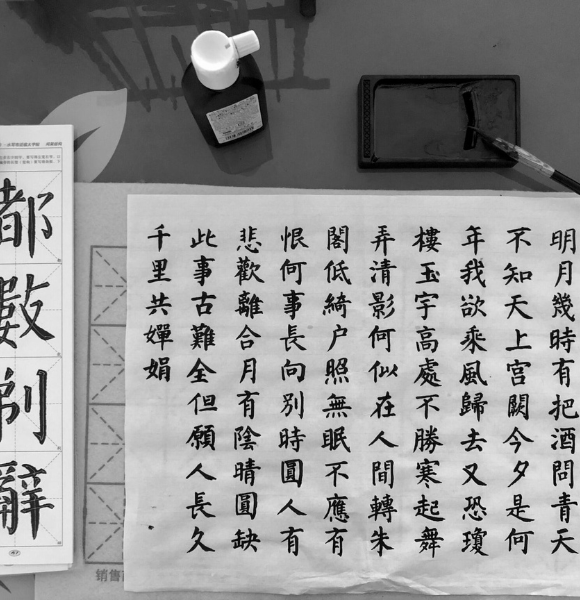 明月幾時有把酒問青天
不知天上宮闕今夕是何
年我欲乘風歸去又恐瓊
樓玉宇高處不勝寒起舞
弄清影何似在人間轉朱
閣低綺户照無眠不應有
恨何事長向別時圓人有
悲歡離合月有陰晴圓缺
此事古難全但願人長久
千里共嬋娟
都
數
別
辭
销售